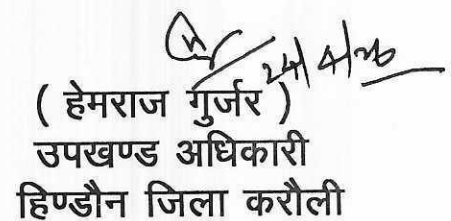 24/4/26
( हेमराज गुर्जर )
उपखण्ड अधिकारी
हिण्डौन जिला करौली